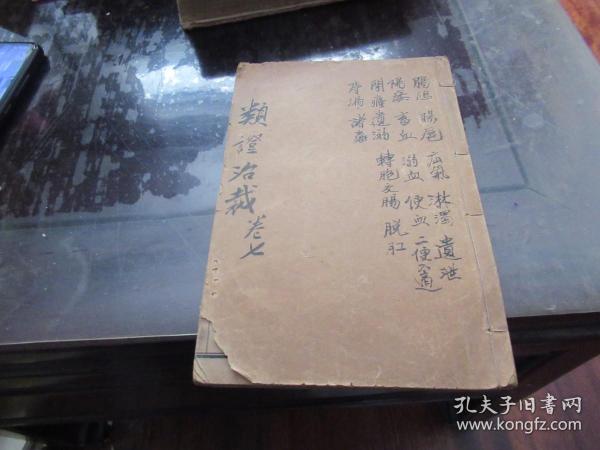 疝氣 淋濁 遺泄
畜血 溺血 便血 二便不通
閉癃遺溺 轉胞交腸 脱肛
痔漏 諸蟲
類證治裁卷七
孔夫子旧书网
www.kongfz.com